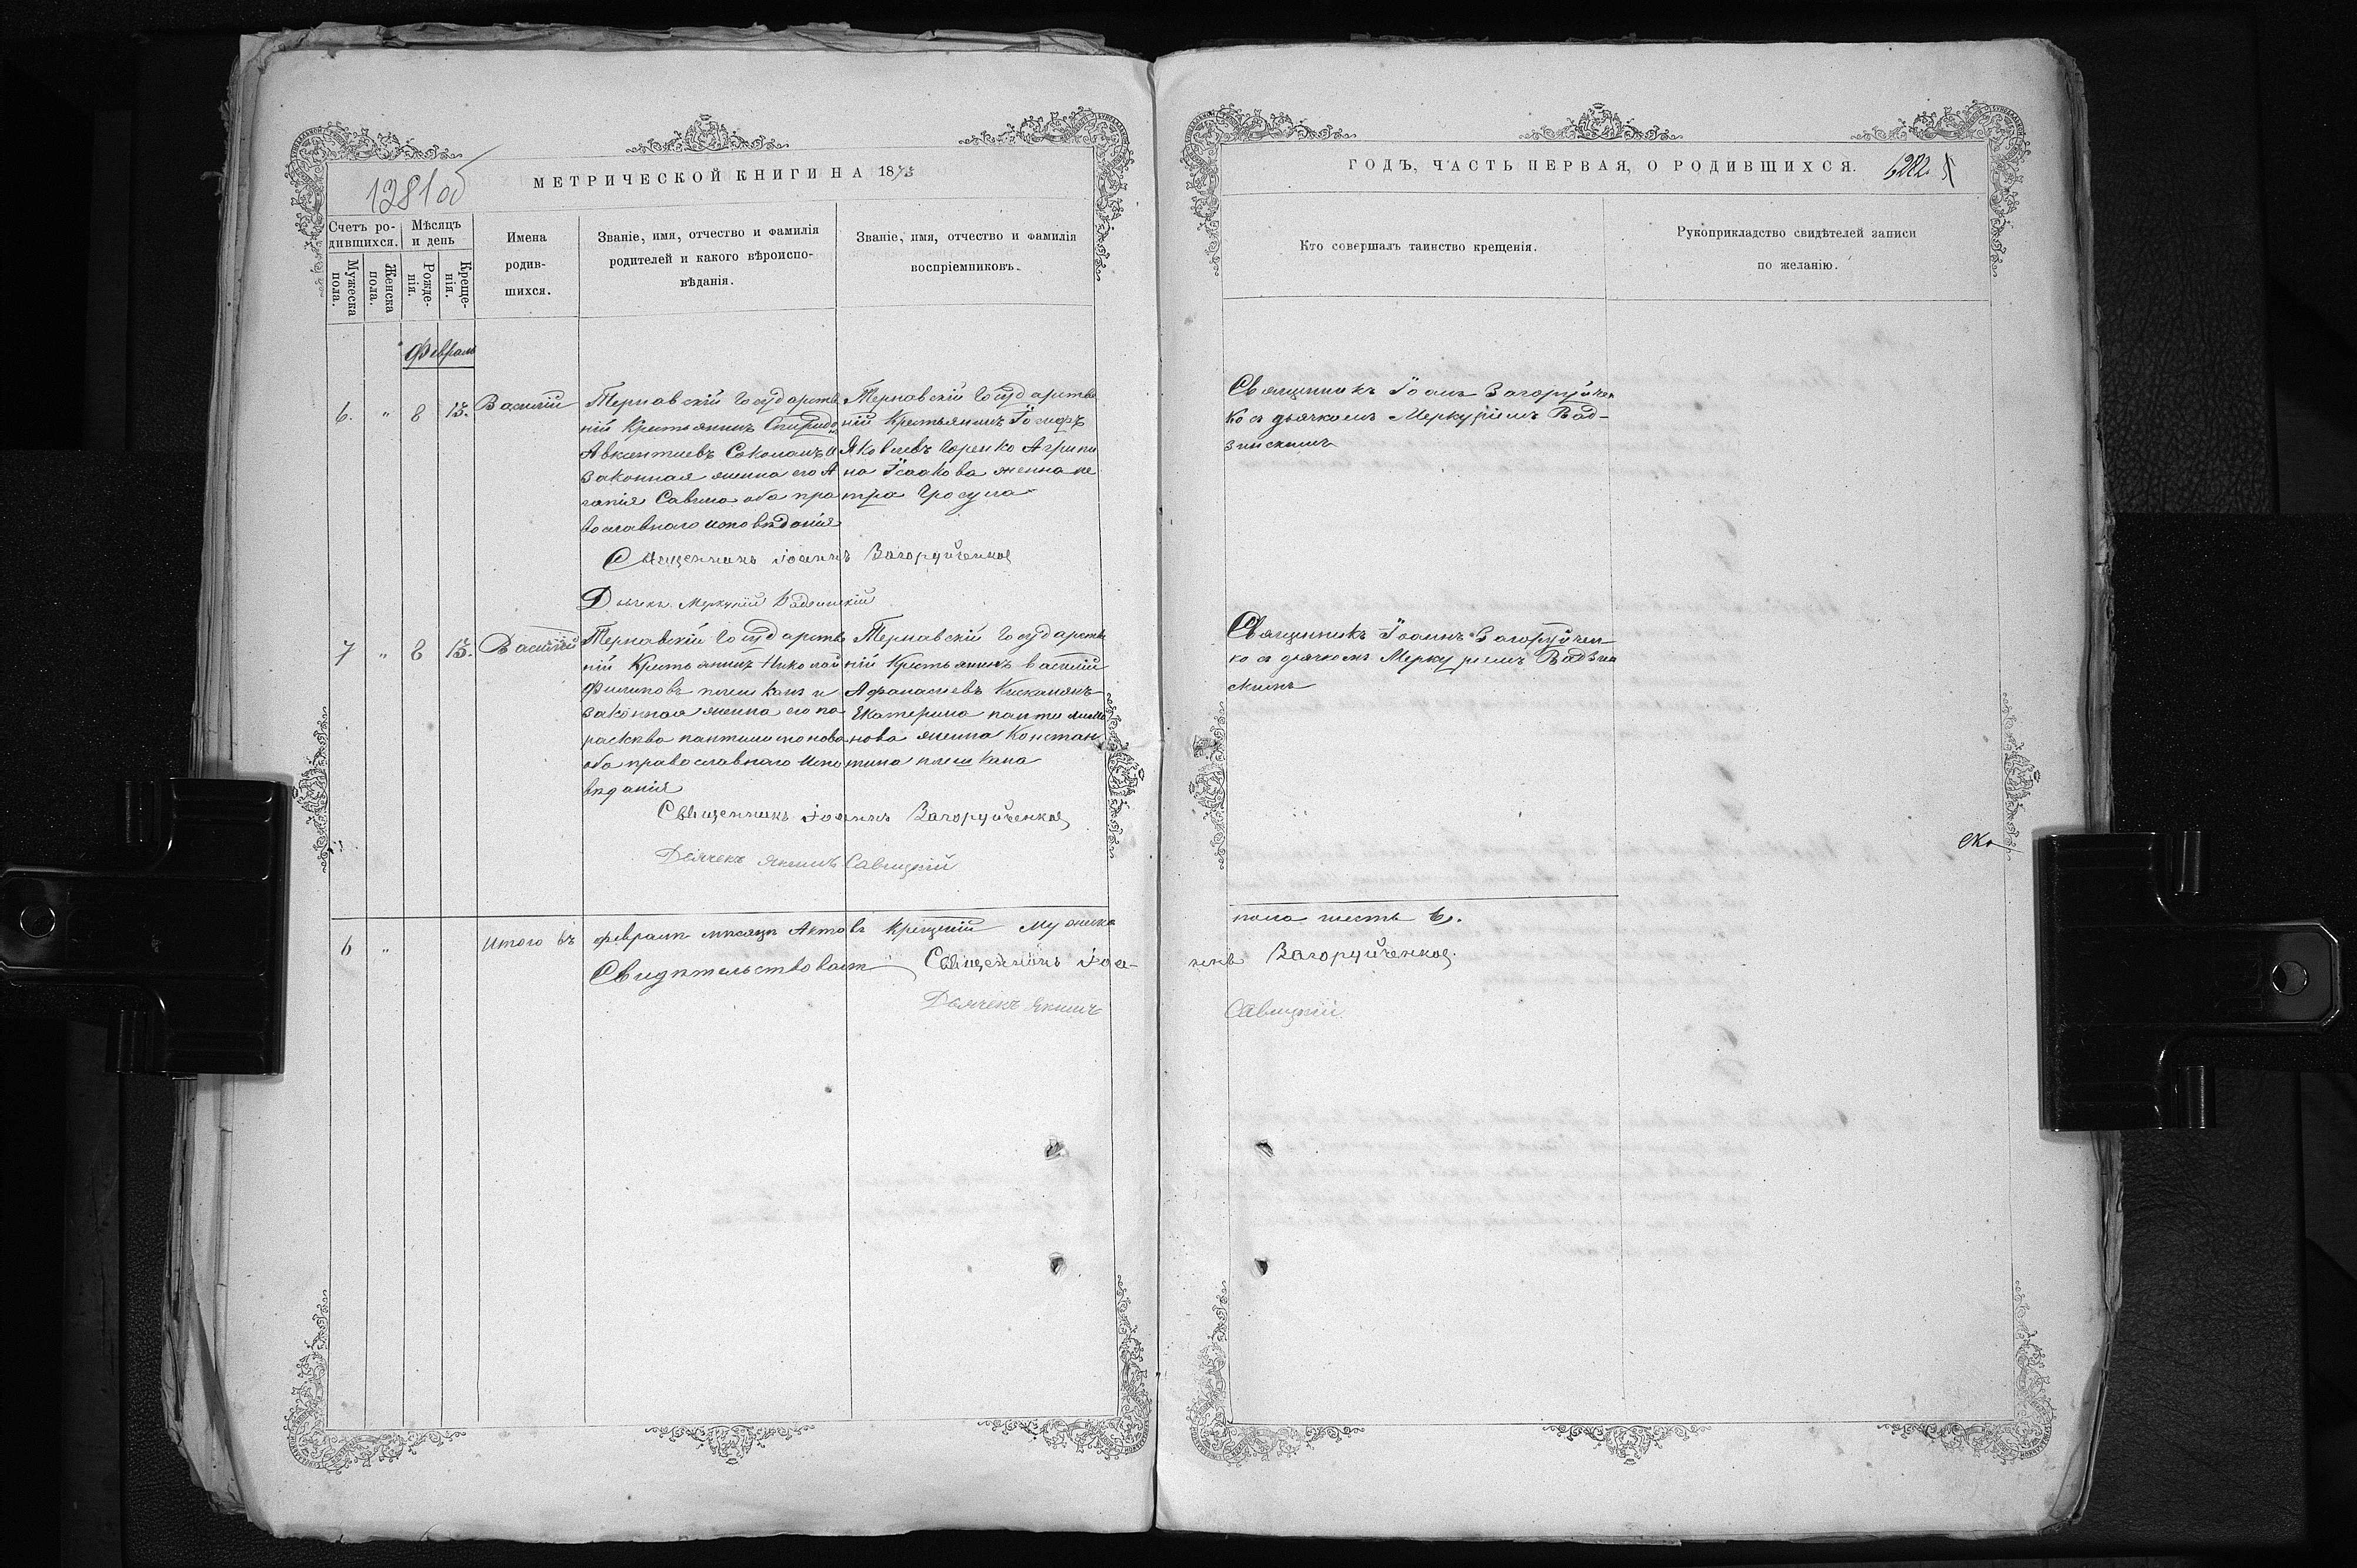 1281об
МЕТРИЧЕСКОЙ КНИГИ НА 1873
Счетъ ро-
дившихся.
Мѣсяцъ
и день
Мужеска
пола.
Женска
пола.
Рожде-
нія.
Креще-
нія.
Имена
родив-
шихся.
Званіе, имя, отчество и фамилія
родителей и какого вѣроиспо-
вѣданія.
Званіе, имя, отчество и фамилія
воспріемниковъ.
Февраль
6. " 8 13. Василій
Терновскій Государств
ній Крестьянинъ Спиридо
Авксентіевъ Соколанъ и
законная жена его А
гапія Савина оба пра
вославнаго исповѣданія
Терновскій Государстве
ній Крестьянинъ Іосифъ
Яковлевъ Горенко Агрипи
на Ісаакова жена пе
тра Гросула
Священникъ Іоаннъ Загоруйченко
Дьячекъ Меркурій Вадзинскій
7 " 8 13. Василій
Терновскій Государств
ній Крестьянинъ Николай
Филиповъ плешканъ и
законная жена его па
расκева пантилимонова
оба православнаго Испо
вѣданія
Терновскій Государств
ній Крестьянинъ василій
Афанасіевъ
Екатерина пантилимо
нова жена Констан
тина плешкана
Священникъ Іоаннъ Загоруйченко
Дьячекъ Якимъ Савицкій
6 " Итого въ февралѣ мѣсяцѣ Актовъ Крещеній Мужеска
Свидѣтельствоватъ Священникъ Іоа-
Дьячекъ Якимъ
ГОДЪ, ЧАСТЬ ПЕРВАЯ, О РОДИВШИХСЯ.
Кто совершалъ таинство крещенія.
Рукоприкладство свидѣтелей записи
по желанію.
Священникъ Іоанъ Загоруйчен
ко съ дьячкомъ Меркуріемъ Вад-
зинскимъ
Священникъ Іоаннъ Загоруйчен
ко съ дьячкомъ Меркуріемъ Вадзин
скимъ
ско
пола шесть 6.
ннъ Загоруйченко
Савицкій